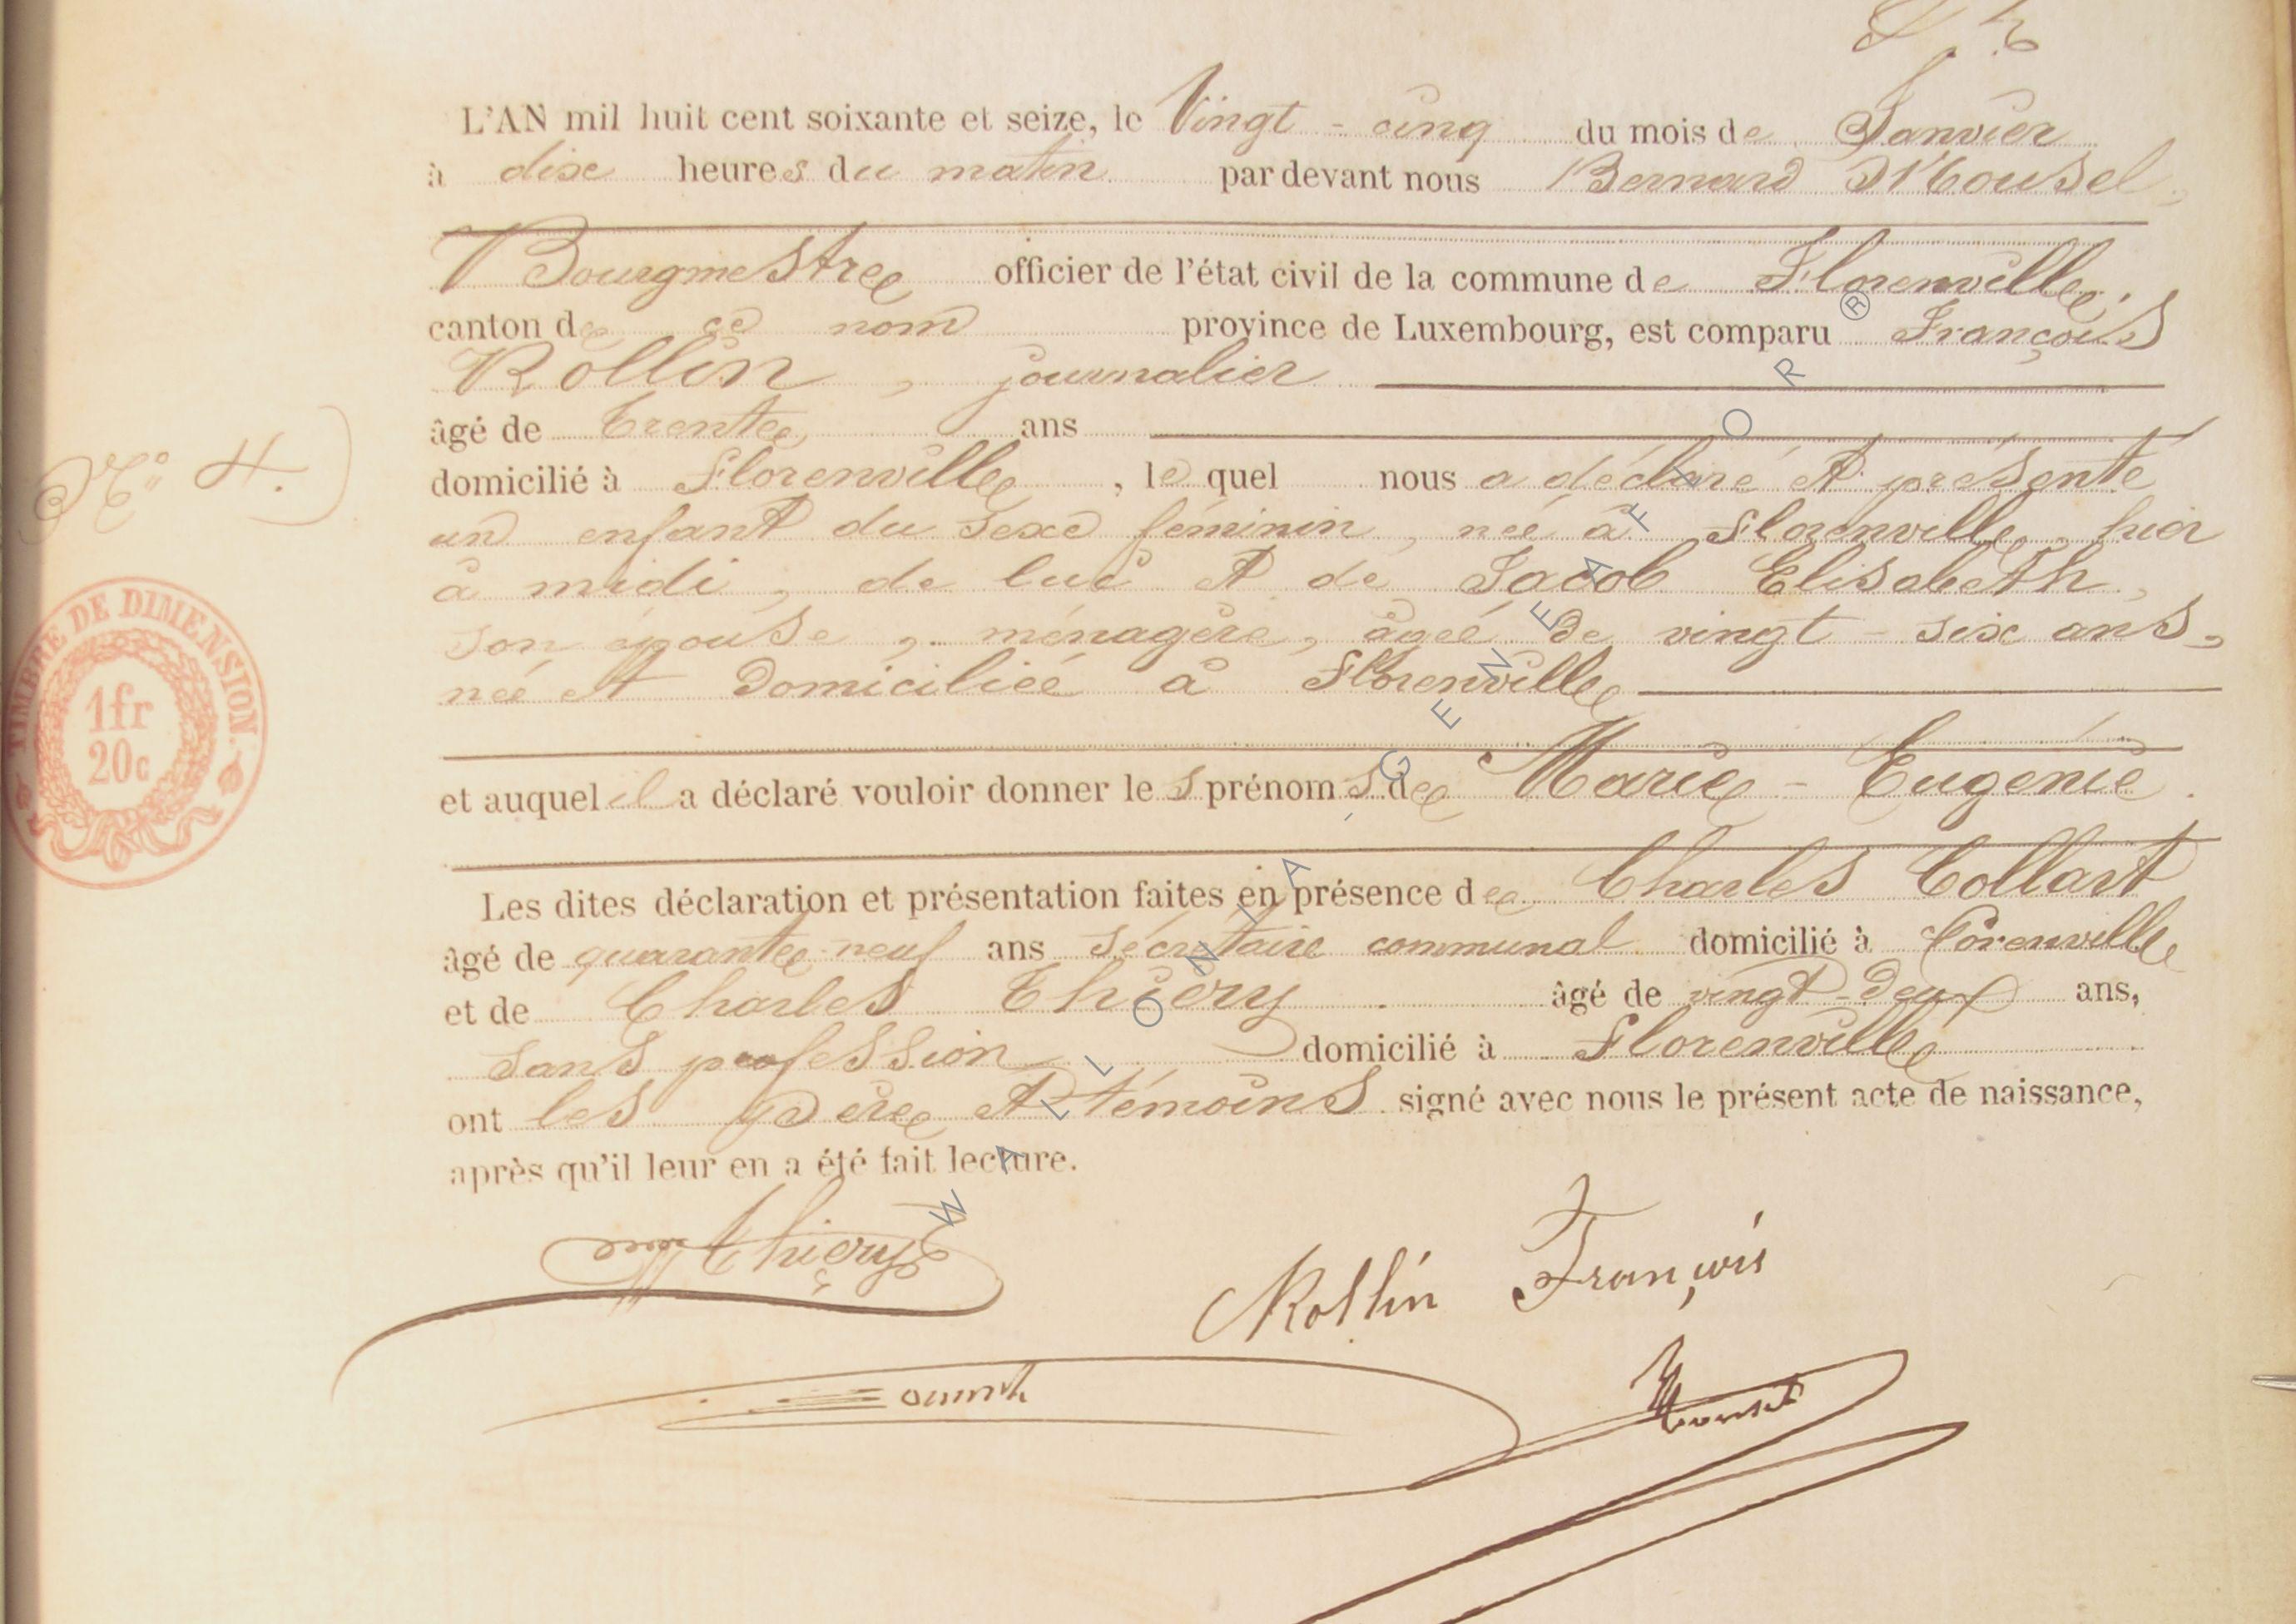 L'AN mil huit cent soixante et seize, le Vingt - cinq du mois de Janvier
à dix heures du matin par devant nous Bernard Mousel,
Bourgmestre officier de l'état civil de la commune de Florenville,
canton de ce nom province de Luxembourg, est comparu François
Rollin, journalier
âgé de trente ans
domicilié à Florenville, le quel nous a déclaré et présenté
un enfant du sexe féminin, née à Florenville, hier
à midi, de lui et de Jacob Elisabeth,
son épouse, ménagère, âgée de vingt - six ans,
née et domiciliée à Florenville
et auquel il a déclaré vouloir donner les prénoms de Marie - Eugenie.
Les dites déclaration et présentation faites en présence de Charles Collart
âgé de quarante-neuf ans secrétaire communal domicilié à Florenville
et de Charles Thiery âgé de vingt-deux ans,
sans profession domicilié à Florenville
ont les père et témoins signé avec nous le présent acte de naissance,
après qu'il leur en a été fait lecture.
N° 4.
TIMBRE DE DIMENSION.
1fr
20c
Thiery
Rollin François
Mousel
WALLONIA - GENEAFLOR ®